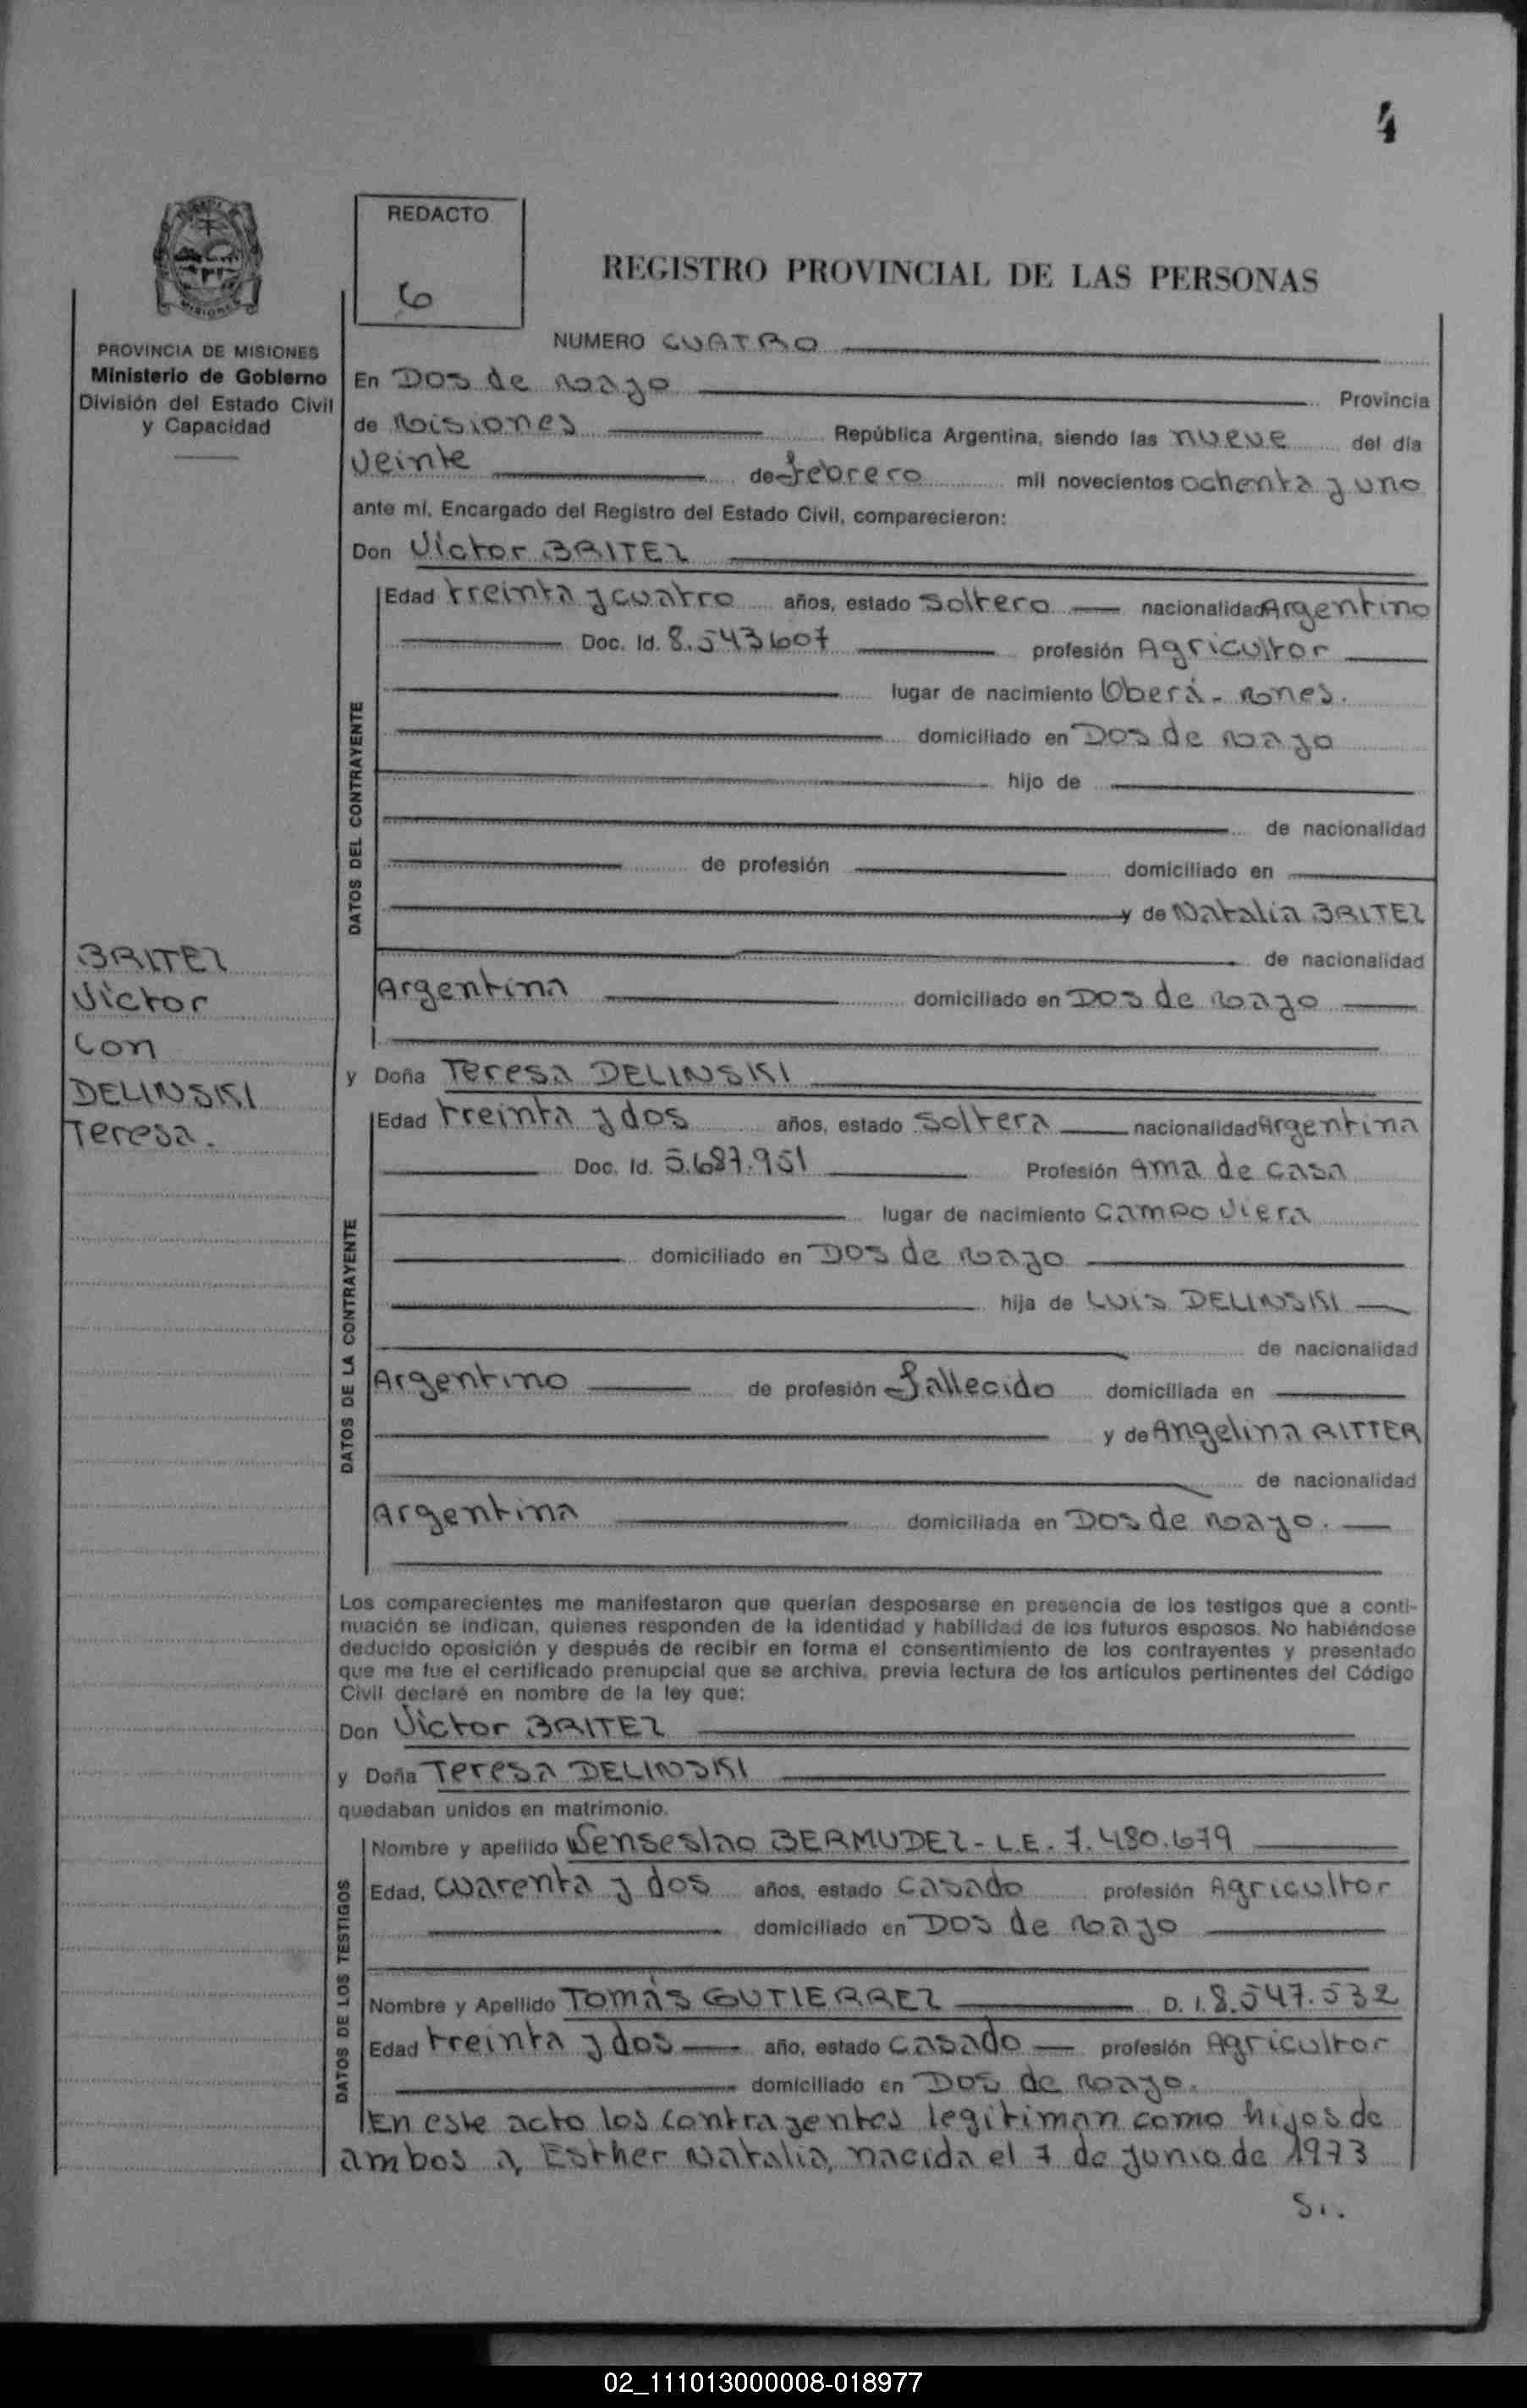 4
REDACTO
6
REGISTRO PROVINCIAL DE LAS PERSONAS
MISIONES
PROVINCIA DE MISIONES
Ministerio de Gobierno
División del Estado Civil
y Capacidad
NUMERO CUATRO
En DOS de mayo Provincia
de Misiones República Argentina, siendo las nueve del día
veinte de febrero mil novecientos ochenta y uno
ante mí, Encargado del Registro del Estado Civil, comparecieron:
Don Victor BRITEZ
DATOS DEL CONTRAYENTE
Edad treinta y cuatro años, estado Soltero nacionalidad Argentino
Doc. Id. 8.543607 profesión Agricultor
lugar de nacimiento Oberá - Mnes.
domiciliado en DOS de mayo
hijo de
de nacionalidad
de profesión domiciliado en
y de Natalia BRITEZ
de nacionalidad
Argentina domiciliado en DOS de mayo
BRITEZ
Victor
Con
DELINSKI
Teresa.
y Doña Teresa DELINSKI
DATOS DE LA CONTRAYENTE
Edad treinta y dos años, estado Soltera nacionalidad Argentina
Doc. Id. 5.687.951 Profesión Ama de casa
lugar de nacimiento Campo Viera
domiciliado en DOS de mayo
hija de LUIS DELINSKI
de nacionalidad
Argentino de profesión fallecido domiciliada en
y de Angelina RITTER
de nacionalidad
Argentina domiciliada en DOS de mayo.
Los comparecientes me manifestaron que querían desposarse en presencia de los testigos que a conti-
nuación se indican, quienes responden de la identidad y habilidad de los futuros esposos. No habiéndose
deducido oposición y después de recibir en forma el consentimiento de los contrayentes y presentado
que me fue el certificado prenupcial que se archiva, previa lectura de los artículos pertinentes del Código
Civil declaré en nombre de la ley que:
Don Victor BRITEZ
y Doña Teresa DELINSKI
quedaban unidos en matrimonio.
DATOS DE LOS TESTIGOS
Nombre y apellido Wenseslao BERMUDEZ - L.E. 7.480.679
Edad, cuarenta y dos años, estado Casado profesión Agricultor
domiciliado en DOS de mayo
Nombre y Apellido TOMÁS GUTIERREZ D.I. 8.547.532
Edad treinta y dos año, estado casado profesión Agricultor
domiciliado en DOS de mayo.
En este acto los contrayentes legitiman como hijos de
ambos a, Esther Natalia, nacida el 7 de junio de 1973
S..
02_111013000008-018977